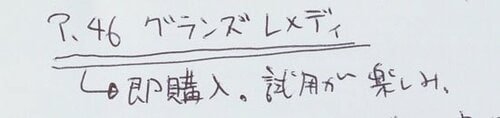 P.46 グランズレメディ
↳即購入。試用が楽しみ。